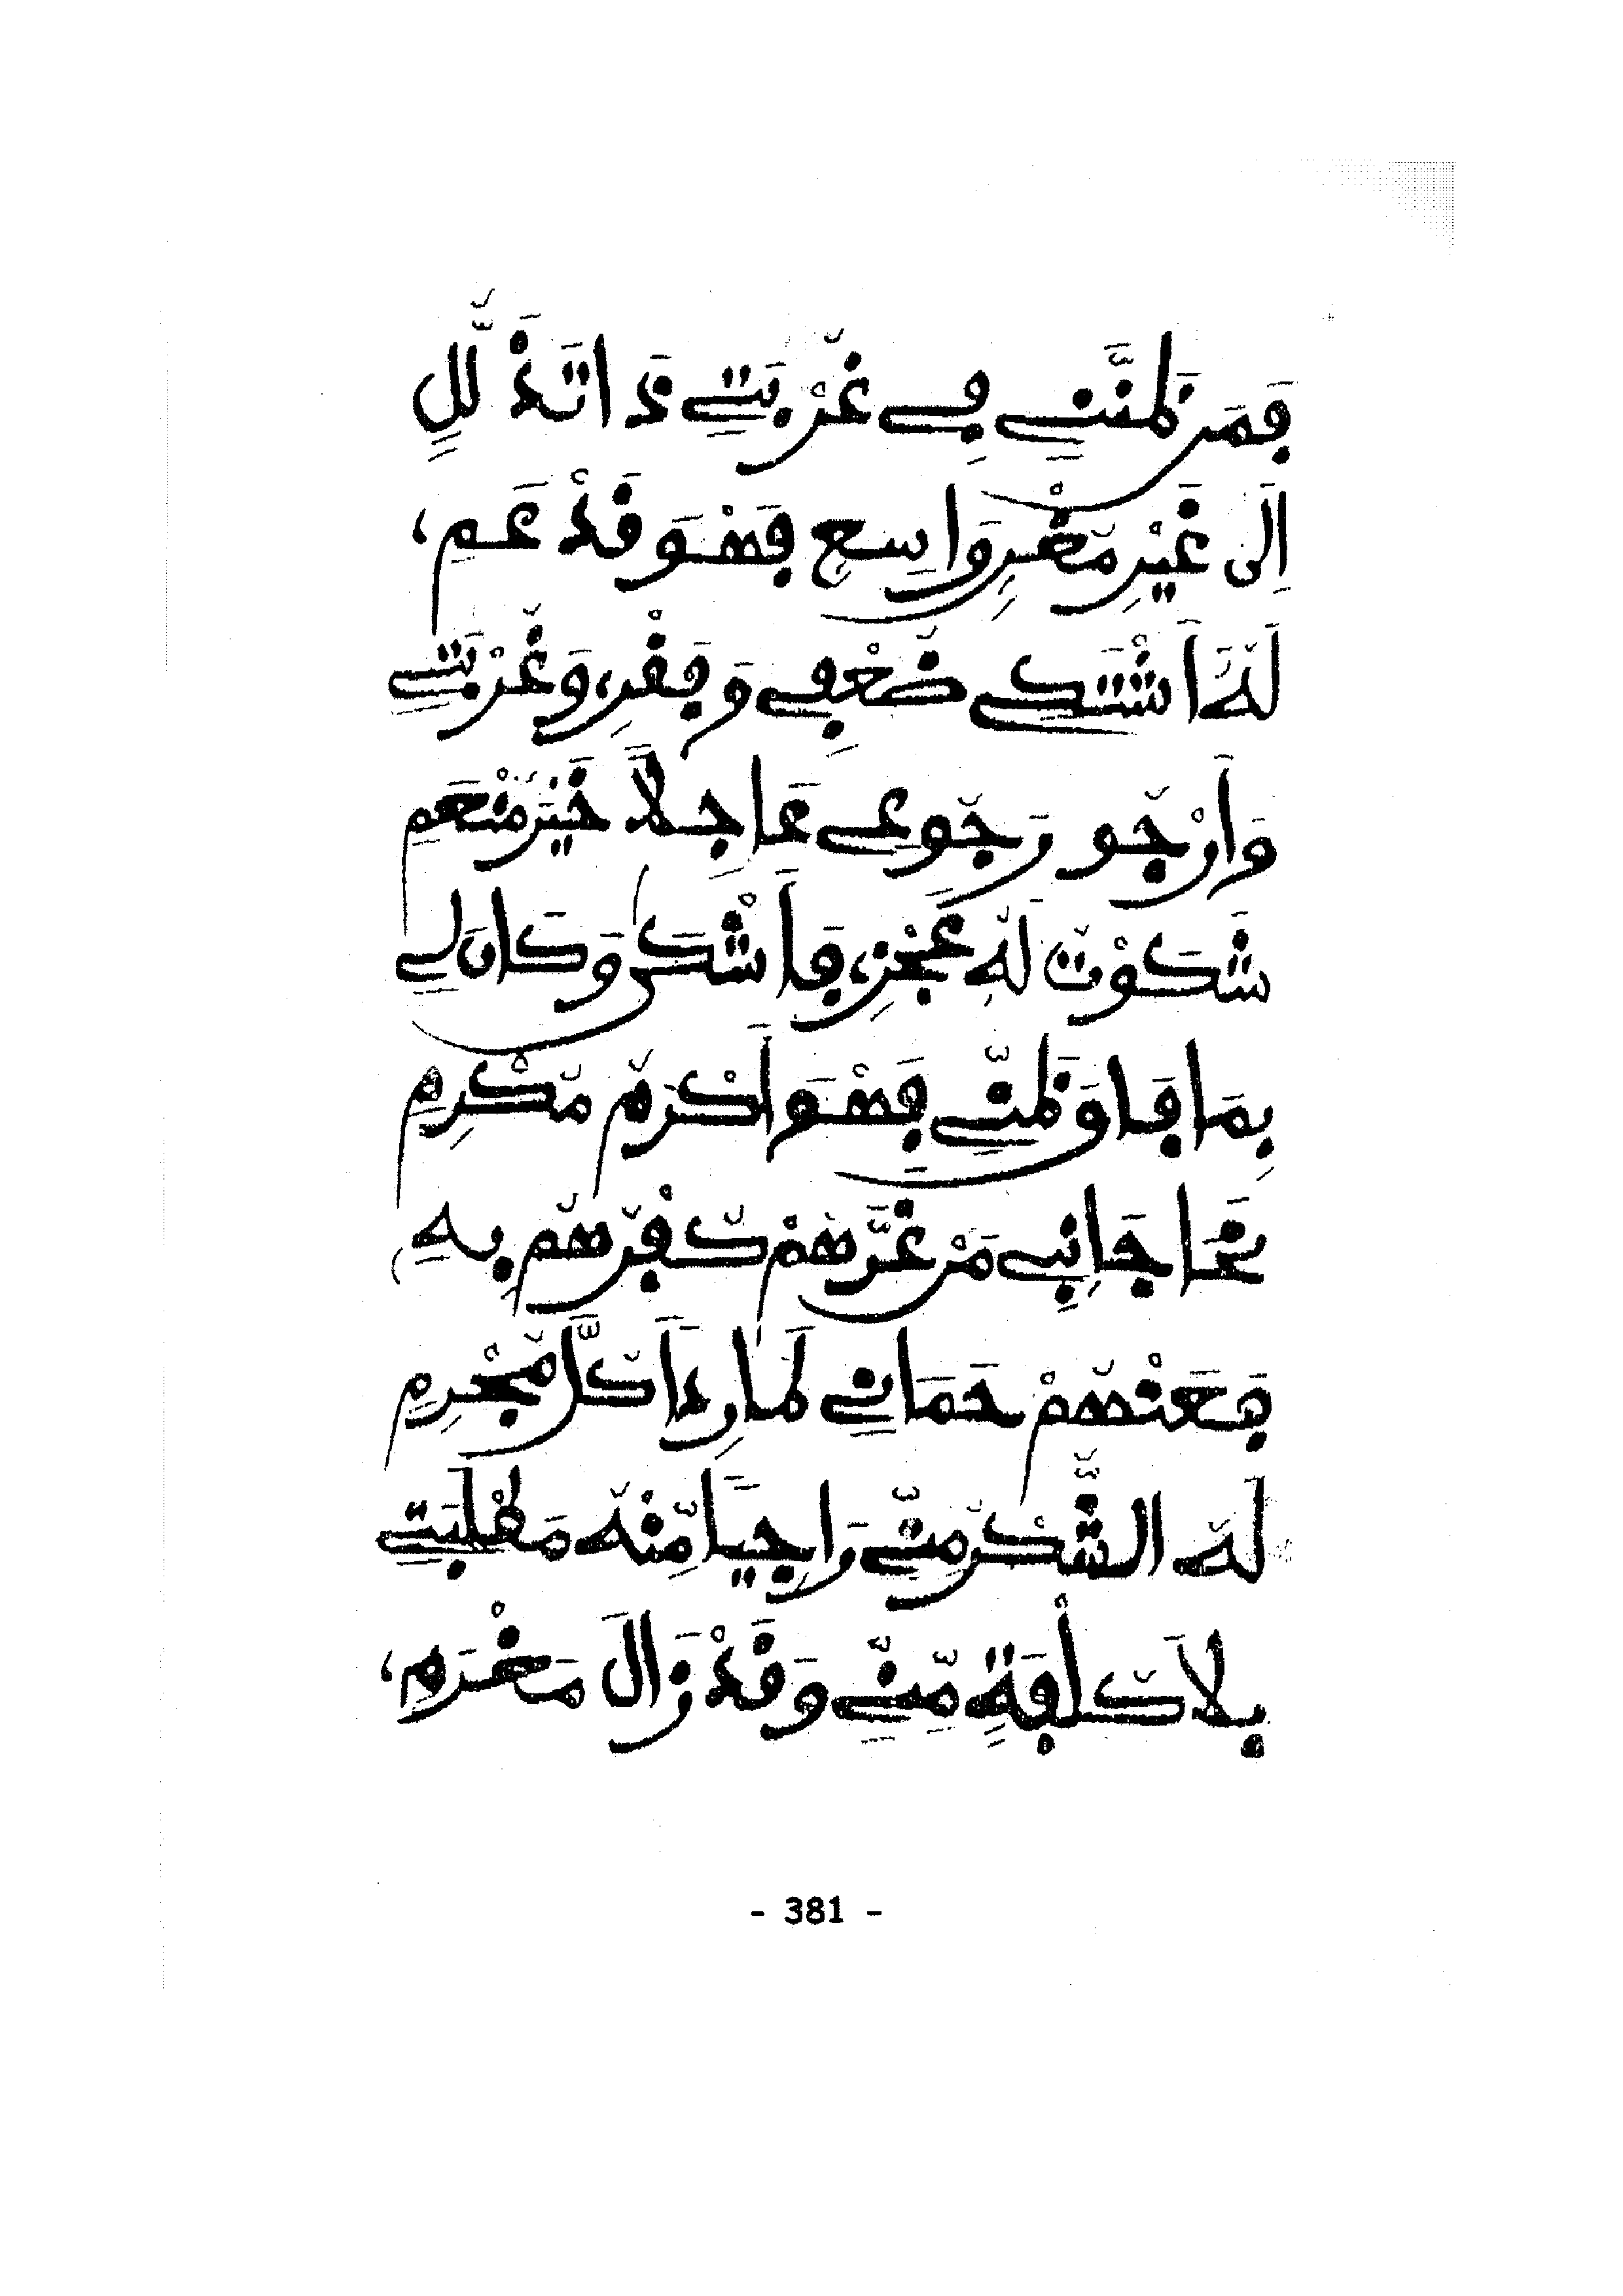 فَمَن ظَنَّنِي فِي غُرْبَتِي ذَا تَذَلُّلٍ
اِلَى غَيْرِ مُغْنٍ وَاسِعٍ فَهْوَ قَدْ عَمِ
لَهُ أَشْتَكِي ضُعْفِي وَفَقْرِ وَغُرْبَتِي
وَأَرْجُو رُجُوعِي عَاجِلاً خَيْرَ مُنْعَمِ
شَكَوْتُ لَهُ عَجْزِ فَأَشْكَى وَكَانَ لِي
بِمَا فَاقَ ظَنِّي فَهْوَ أَكْرَمُ مُكْرِمِ
نَحَا جَانِبِي مَنْ غَرَّهُمْ كُفْرُهُم بِهِ
فَعَنْهُمْ حَمَانِي لِمَا رِدًا كُلُّ مُجْرِمِ
لَهُ الشُّكْرُ مِنِّي رَاجِيًا مِّنْهُ مَطْلَبَتِي
بِلاَ كُلْفَةٍ مِّنِّي وَقَدْ زَالَ مَغْرَمِ
- 381 -